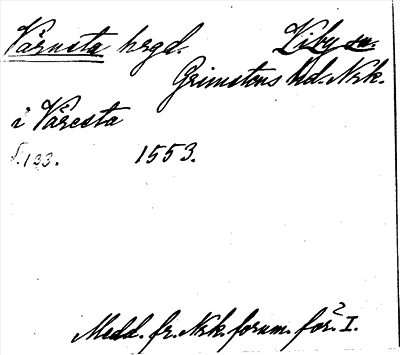 Vårnsta hrgd. Viby sn.
Grimstens hd. Nrk.
i Våresta
s. 133. 1553.
Medd. fr. Nrk. fornm. för. I.